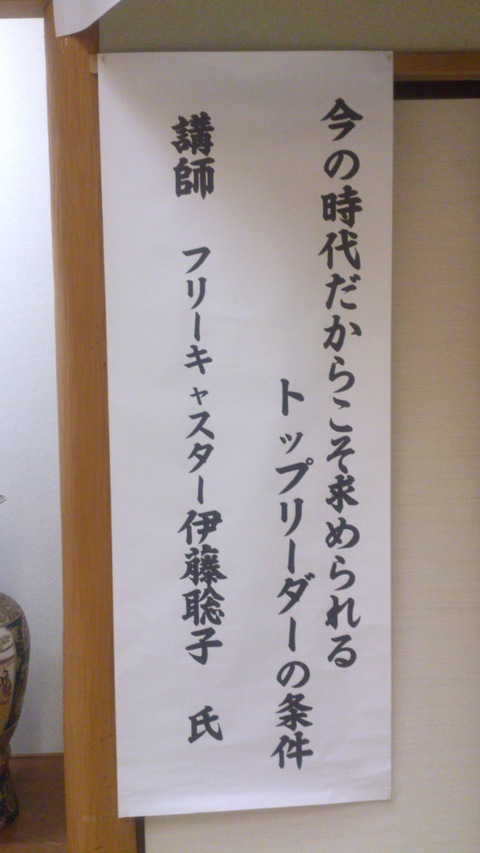 今の時代だからこそ求められる
トップリーダーの条件
講師 フリーキャスター伊藤聡子 氏